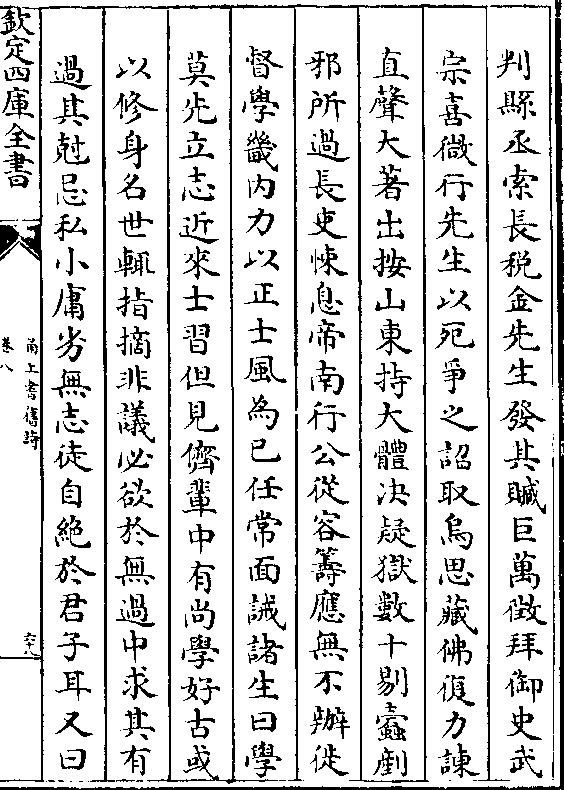 判縣丞索長稅金先生發其贓巨萬徵拜御史武
宗喜微行先生以死爭之詔取烏思藏佛復力諫
直聲大著出按山東持大體决疑獄數十剔蠹剷
邪所過長吏悚息帝南行公從容籌應無不辦徙
督學畿内力以正士風為已任常面誡諸生曰學
莫先立志近來士習但見儕輩中有尚學好古或
以修身名世輒指摘非議必欲於無過中求其有
過其尅忌私小庸劣無志徒自絶於君子耳又曰
欽定四庫全書
甬上耆舊詩
卷八
六十八